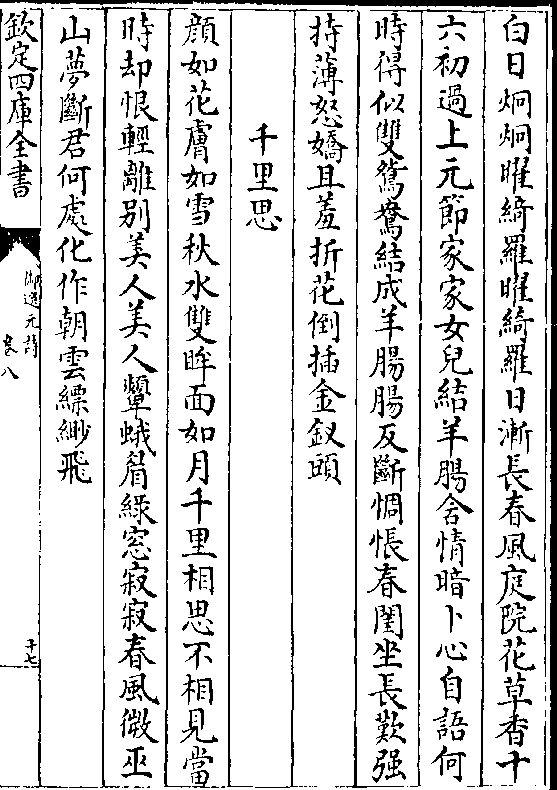 白日炯炯曜綺羅曜綺羅日漸長春風庭院花草香十
六初過上元節家家女兒結羊腸含情暗卜心自語何
時得似雙鴛鴦結成羊腸腸反斷惆悵春閨坐長歎强
持薄怒嬌且羞折花倒插金釵頭
千里思
顔如花膚如雪秋水雙眸面如月千里相思不相見當
時却恨輕離别美人美人顰蛾眉綠窓寂寂春風微巫
山夢斷君何處化作朝雲縹緲飛
欽定四庫全書
御選元詩
卷八
十七